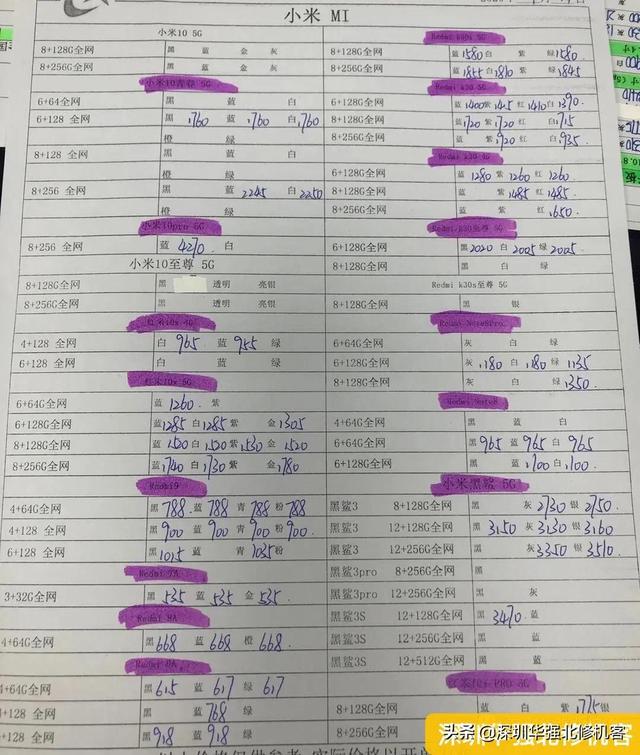 小米 MI
小米10 5G
8+128G全网 黑 蓝 金 灰
8+256G全网 黑 蓝 金 灰
小米10青春 5G
6+64全网 黑 蓝 白
6+128 全网 黑1760 蓝1760 白1760
橙 绿
8+128 全网 黑 蓝 白
橙 绿
8+256 全网 黑 蓝2245 白2250
橙 绿
小米10pro 5G
8+256 全网 蓝4270 白
小米10至尊 5G
8+128G全网 黑 透明 亮银
8+256G全网 黑 透明 亮银
红米10x 4G
4+128 全网 白965 蓝955 绿
6+128 全网 白 蓝 绿
红米10x 5G
6+64G全网 蓝1260 紫
6+128G全网 蓝1285 白1285 紫 金1305
8+128G全网 蓝1520 白1520 紫1530 金1520
8+256G全网 蓝1740 白1730 紫 金1780
Redmi9
4+64G全网 黑788 蓝788 青788 粉788
4+128 全网 黑900 蓝900 青900 粉900
6+128 全网 黑1015 蓝 青1035 粉
Redmi 9A
3+32G全网 黑535 蓝535 金535
Redmi 8A
4+64G全网 黑668 蓝668 橙668
4+64G全网 黑615 蓝617 绿617
+128 全网 黑 蓝768 绿
+128 全网 黑918 蓝918 绿918
Redmi k30i 5G
8+128G全网 蓝1580 白 紫 绿1580
8+256G全网 蓝1855 白1810 紫 绿1845
Redmi k30 5G
6+128G全网 蓝1400 紫1425 红1410 白1390
8+128G全网 蓝1720 紫1720 红 白1715
8+256G全网 蓝 紫1720 红 白1935
Redmi k30 4G
6+128G全网 蓝1280 紫1260 红1260
8+128G全网 蓝 紫1485 红1485
8+256G全网 蓝 紫 红1650
Redmi k30至尊 5G
6+128G全网 黑2020 白2005 绿2005
8+128G全网 黑 白 绿
Redmi k30s至尊 5G
8+128G全网 黑 银
Redmi Note8Pro
6+64G全网 灰 白 绿
6+128G全网 灰1180 白1180 绿1135
8+128G全网 灰 白 绿1350
Redmi Note8
4+64G全网 黑 蓝 白
6+64G全网 黑965 蓝965 白965
6+128G全网 黑 蓝1100 白1100
小米黑鲨 5G
黑鲨3 8+128G全网 黑 灰2730 银2750
黑鲨3 12+128G全网 黑3150 灰3130 银3160
黑鲨3 12+256G全网 黑 灰3350 银3510
黑鲨3pro 8+256G全网 黑
黑鲨3pro 12+256G全网 黑 灰
黑鲨3S 12+128G全网 黑3470 蓝
黑鲨3S 12+256G全网 黑 蓝
黑鲨3S 12+512G全网 黑 蓝
红米10x PRO 5G
蓝 白 紫1775 银
8+256G全网
头条 @深圳华强北修机客